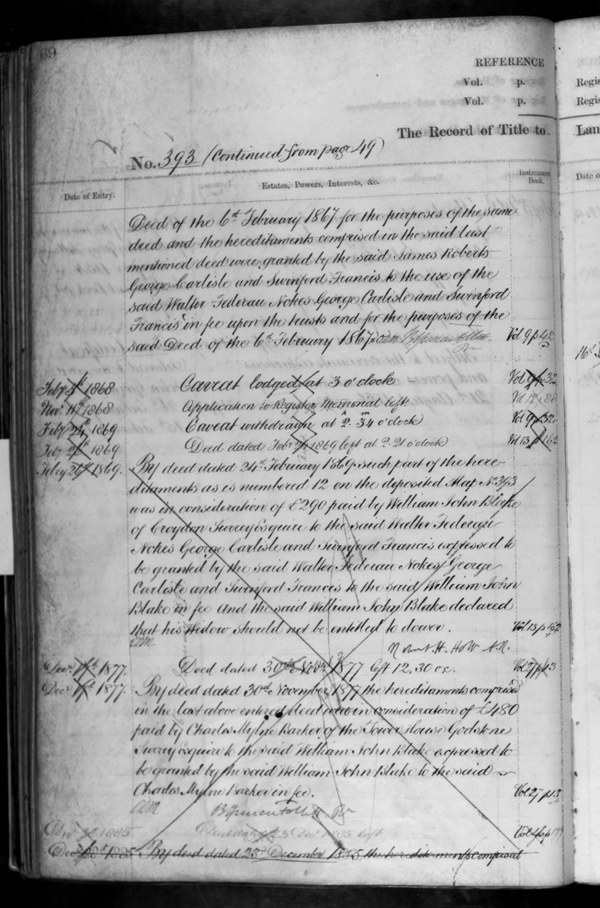 69
REFERENCE
Vol. p.
Vol. p.
The Record of Title to
No. 393 (Continued from page 49)
Date of Entry.
Estates, Powers, Interests, &c.
Instrument Book.
Deed of the 6th February 1867 for the purposes of the same
deed and the hereditaments comprised in the said last
mentioned deed were granted by the said James Roberts
George Carlisle and Swinford Francis to the use of the
said Walter Federau Nokes George Carlisle and Swinford
Francis in fee upon the trusts and for the purposes of the
said Deed of the 6th February 1867 Vol 9 p 42
Feby 1868 Caveat lodged at 3 o'clock Vol 9 p 32
Nov. 11th 1868 Application to Register Memorial left Vol 12
Feby 24th 1869 Caveat withdrawn at 2.34 o'clock Vol 9 p 32
Feby 1869 Deed dated Feby 1869 left at 2.21 o'clock Vol 13 p 162
Feby 24th 1869. By deed dated 24th February 1869 such part of the here
ditaments as is numbered 12 on the deposited Map No. 393
was in consideration of £290 paid by William John Blake
of Croydon Surrey Esquire to the said Walter Federau
Nokes George Carlisle and Swinford Francis expressed to
be granted by the said Walter Federau Nokes George
Carlisle and Swinford Francis to the said William John
Blake in fee and the said William John Blake declared
that his Widow should not be entitled to dower. Vol 13 p 162
Robert H. Holt A.R.
Decr. 1877. Deed dated 30th Novr 1877 left 12,30 o'c. Vol 27 p 13
Decr 1877. By deed dated 30th November 1877 the hereditaments comprised
in the last above entered deed were in consideration of £480
paid by Charles Mylne Barker of the Tower House Godstone
Surrey Esquire to the said William John Blake expressed to
be granted by the said William John Blake to the said
Charles Mylne Barker in fee. Vol 27 p 13
Decr 1885 Deed dated Decr 1885 left
Decr 1885 By deed dated 23rd December 1885 the hereditaments comprised
Regi
Regi
Lan
Date o